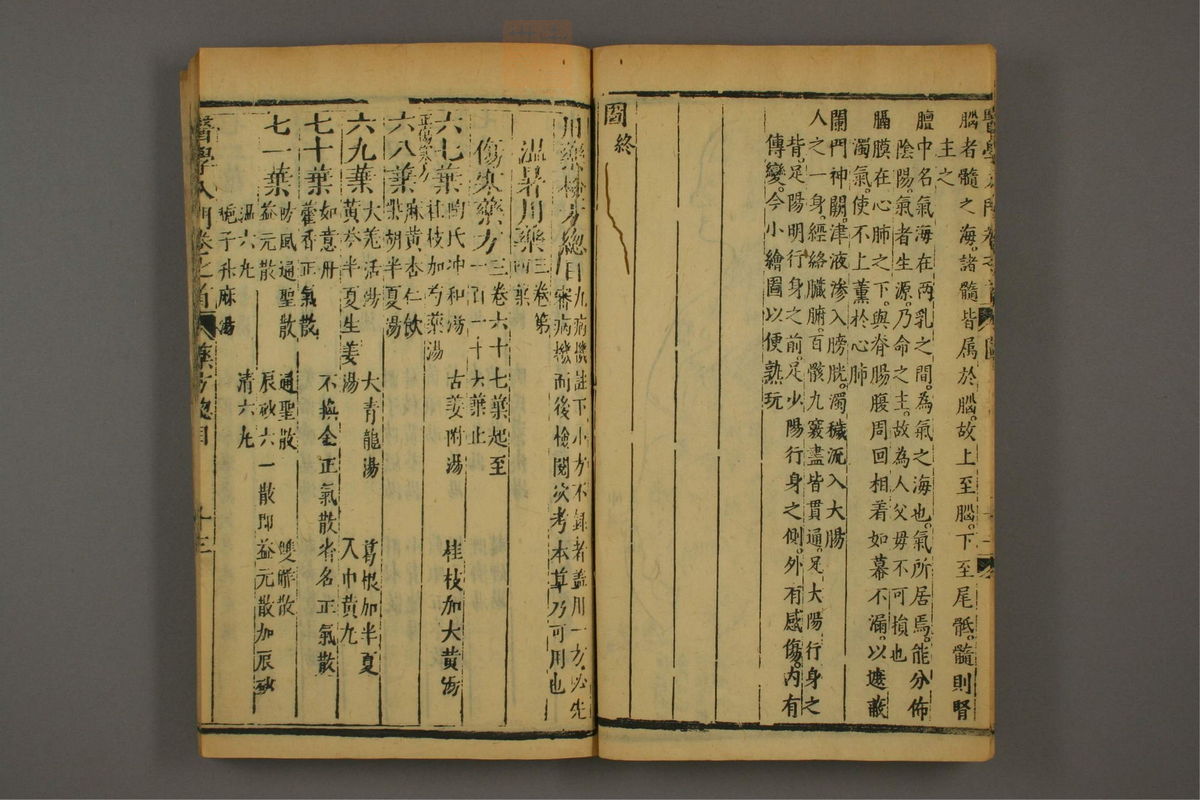 腦者髓之海諸髓皆属於腦。故上至腦。下至尾骶。髓則腎
主之
膻中名。氣海在两乳之間。為氣之海也。氣所居焉。能分佈
陰陽。氣者生源。乃命之主。故為人父母不可損也
膈膜在心肺之下。與脊腸腹周回相着如幕不漏。以遮蔽
濁氣。使不上薰於心肺
闌門神闕。津液渗入膀胱。濁穢流入大腸
人之一身。經絡臟腑。百骸九竅。盡皆貫通。足太陽。行身之
背。足陽明行身之前。足少陽行身之側。外有感傷。内有
傳變。今小繪圖以便熟玩
圖終
用藥檢方總目凡病機註下小方不録者盖用一方必先
審病機而後檢閲次考本草乃可用也
温暑用藥三卷第
四葉
傷寒藥方三卷六十七葉起至
一百一十六葉止
六七葉陶氏冲和湯 古姜附湯 桂枝加大黄湯
正傷寒方 桂枝加芍藥湯
六八葉麻黄杏仁飲
柴胡半夏湯
六九葉大羌活湯 大青龍湯 葛根加半夏
黄芩半夏生姜湯 入中黄丸
七十葉如意丹 不換金正氣散者名正氣散
藿香正氣散
七一葉防風通聖散 通聖散 雙解散
益元散 辰砂六一散即益元散加辰砂
温六丸 清六丸
梔子升麻湯
醫學入門卷之首 藥方總目 十三